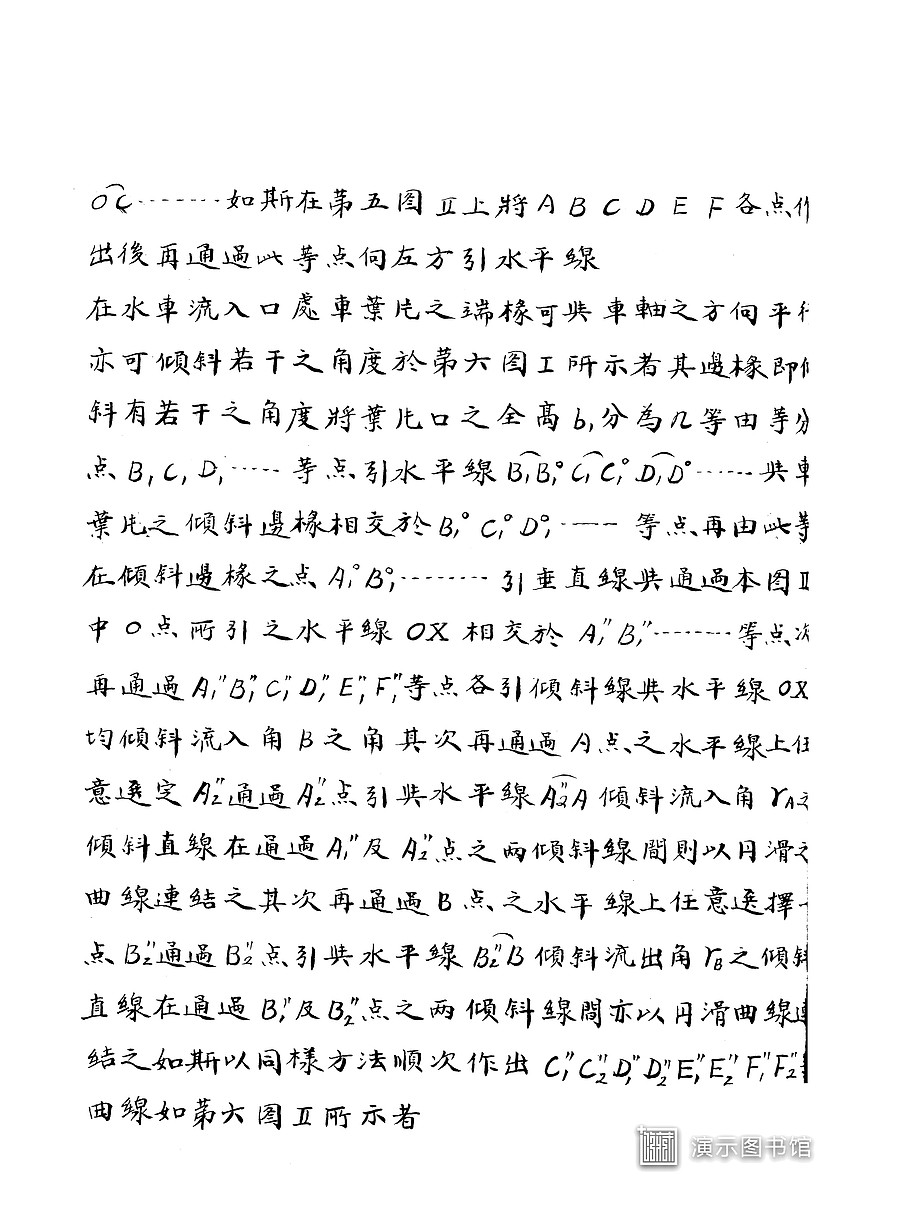 OC⌢……如斯在第五图Ⅱ上將A B C D E F各点作
出後再通過此等点向左方引水平線
在水車流入口處車葉片之端椽可與車軸之方向平行
亦可傾斜若干之角度於第六图Ⅰ所示者其邊椽即傾
斜有若干之角度將葉片口之全高b₁分為几等由等分
点B₁C₁D₁……等点引水平線B₁B₁° C₁C₁° D₁D°……與車
葉片之傾斜邊椽相交於B₁° C₁° D₁°……等点再由此等
在傾斜邊椽之点A₁°B₁°………引垂直線與通過本图Ⅱ
中O点所引之水平線OX相交於A₁″B₁″………等点次
再通過A₁″B₁″C₁″D₁″E₁″F₁″等点各引傾斜線與水平線OX
均傾斜流入角B之角其次再通過A点之水平線上任
意選定A₂″通過A₂″点引與水平線A₂″A傾斜流入角γA之
傾斜直線在通過A₁″及A₂″点之两傾斜線間則以円滑之
曲線連結之其次再通過B点之水平線上任意選擇一
点B₂″通過B₂″点引與水平線B₂″B傾斜流出角γB之傾斜
直線在通過B₁″及B₂″点之两傾斜線間亦以円滑曲線連
結之如斯以同樣方法順次作出C₁″C₂″D₁″D₂″E₁″E₂″F₁″F₂″
曲線如第六图Ⅱ所示者
演示图书馆